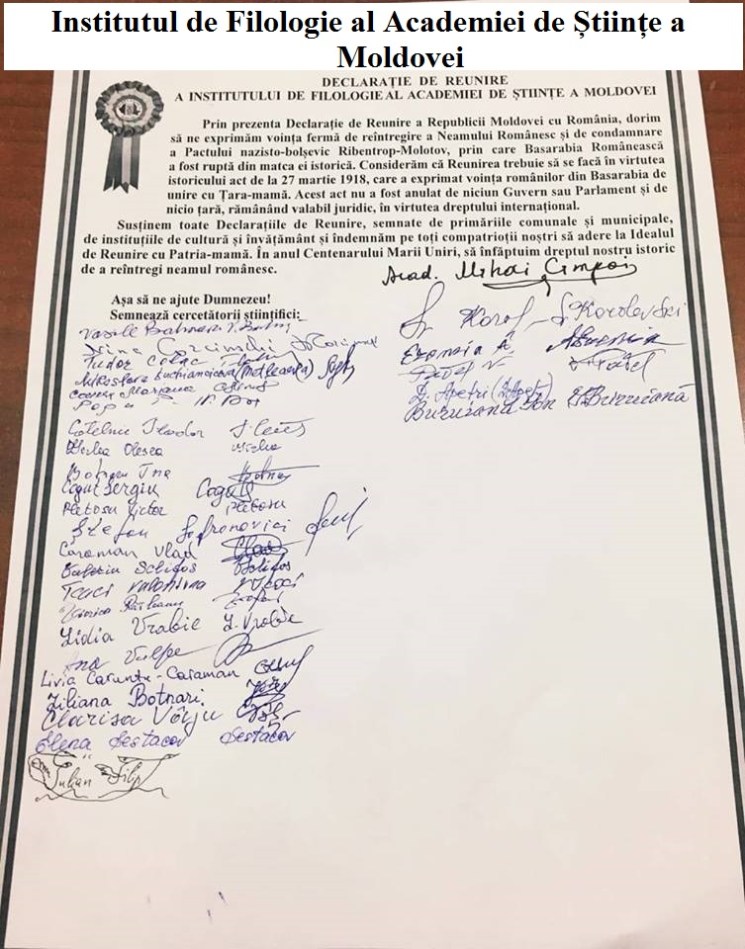 Institutul de Filologie al Academiei de Științe a
Moldovei
DECLARAȚIE DE REUNIRE
A INSTITUTULUI DE FILOLOGIE AL ACADEMIEI DE ȘTIINȚE A MOLDOVEI
Prin prezenta Declarație de Reunire a Republicii Moldovei cu România, dorim
să ne exprimăm voința fermă de reîntregire a Neamului Românesc și de condamnare
a Pactului nazisto-bolșevic Ribentrop-Molotov, prin care Basarabia Românească
a fost ruptă din matca ei istorică. Considerăm că Reunirea trebuie să se facă în virtutea
istoricului act de la 27 martie 1918, care a exprimat voința românilor din Basarabia de
unire cu Țara-mamă. Acest act nu a fost anulat de niciun Guvern sau Parlament și de
nicio țară, rămânând valabil juridic, în virtutea dreptului internațional.
Susținem toate Declarațiile de Reunire, semnate de primăriile comunale și municipale,
de instituțiile de cultură și învățământ și îndemnăm pe toți compatrioții noștri să adere la Idealul
de Reunire cu Patria-mamă. În anul Centenarului Marii Uniri, să înfăptuim dreptul nostru istoric
de a reîntregi neamul românesc.
Acad. Mihai Cimpoi
Așa să ne ajute Dumnezeu!
Semnează cercetătorii științifici:
Vasile
Tudor Colac
Popa
Cotelnic Teodor
Olesea
Botnaru Ina
Cogut Sergiu Cogut
Pletosu Victor Pletosu
Ștefan Sofronovici
Caraman Vlad
Tcaci
Lidia Vrabie L. Vrabie
Ana Vulpe
Livia Caruntu-Caraman
Liliana Botnari
Clarisa Vôrju
Elena Sestacov Sestacov
Iulian Filip
Korol
Pavel
Apetri
Buruiană Ion Buruiană